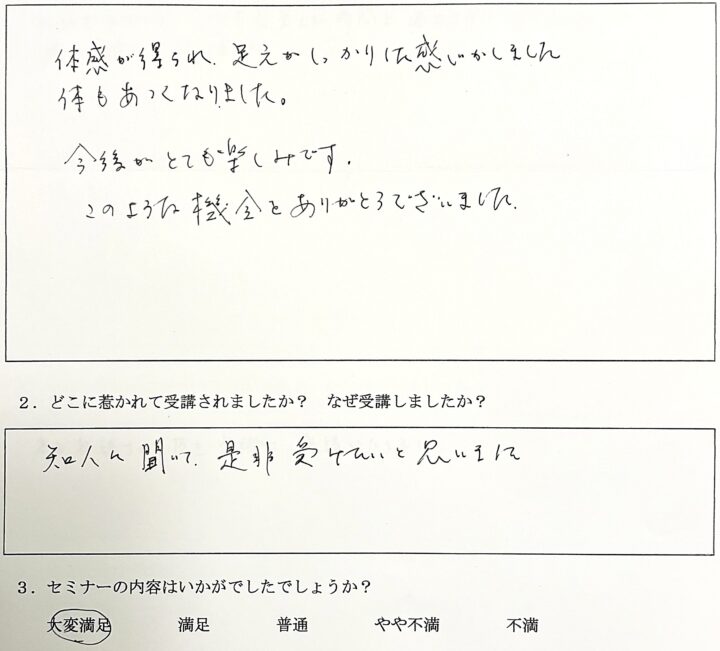 体感が得られ、足元がしっかりした感じがしました
体もあつくなりました。
今後がとても楽しみです。
このような機会をありがとうございました。
2．どこに惹かれて受講されましたか？　なぜ受講しましたか？
知人に聞いて、是非受けたいと思いました
3．セミナーの内容はいかがでしたでしょうか？
大変満足　満足　普通　やや不満　不満